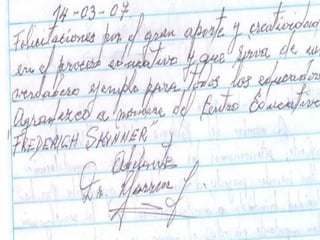 14-03-07.
Felicitaciones por el gran aporte y creatividad
en el proceso educativo y que sirva de un
verdadero ejemplo para todos los educadores
Agradezco a nombre del Centro Educativo
FREDERICH SKINNER
Atent